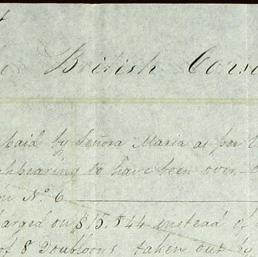 British Cons
paid by Señora Maria as per
appearing to have been over-
on No 6
charged on $15.844 instead of
of 8 Doubloons taken out by